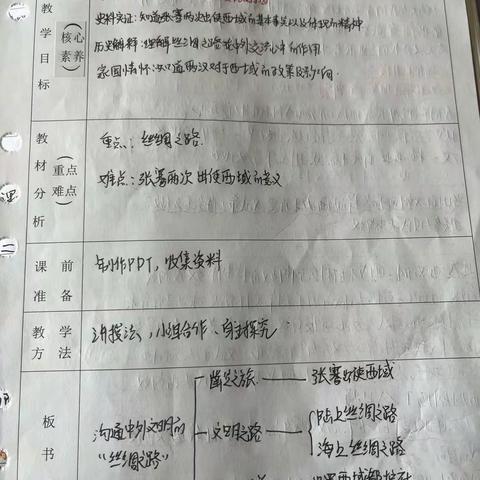 教学目标（核心素养）
史料实证：知道张骞两次出使西域的基本事实以及体现的精神
历史解释：理解丝绸之路在中外交流中的作用
家国情怀：知道两汉对于西域的政策及影响
教材分析（重点难点）
重点：丝绸之路
难点：张骞两次出使西域的意义
课前准备
制作PPT，收集资料
教学方法
讲授法，小组合作、自主探究
板书
沟通中外文明的
“丝绸之路”
凿空之旅 —— 张骞出使西域
文明之路
陆上丝绸之路
海上丝绸之路